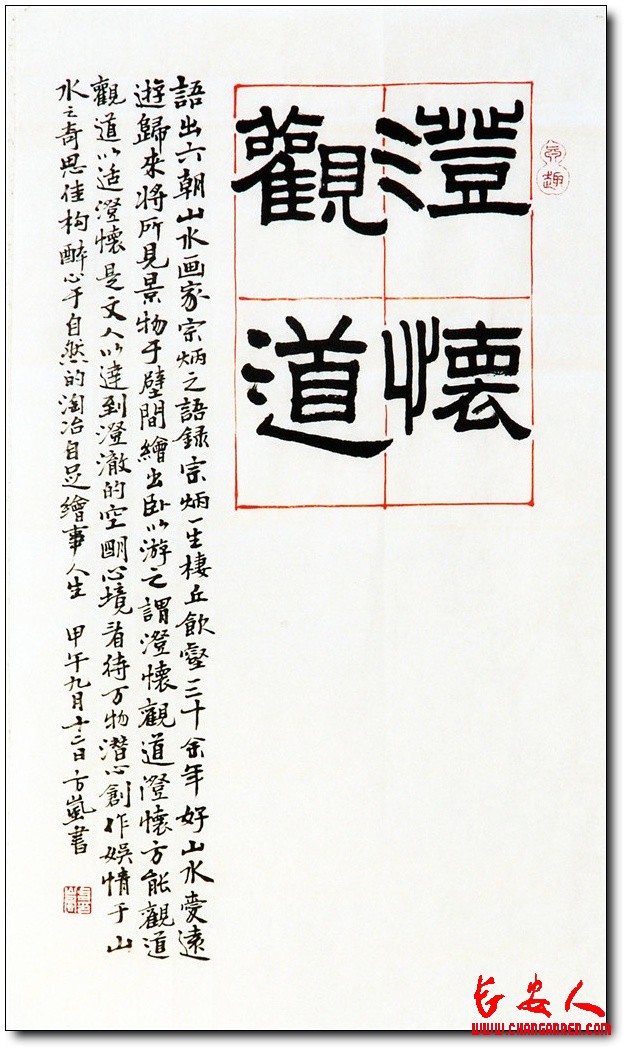 澄懷
觀道
語出六朝山水画家宗炳之語録宗炳一生棲丘飲壑三十余年好山水愛遠
遊歸来将所見景物于壁間繪出卧以游之謂澄懷觀道澄懷方能觀道
觀道以适澄懷是文人以達到澄澈的空明心境看待万物潜心創作娱情于山
水之奇思佳构醉心于自然的淘冶自足繪事人生 甲午九月十二日方嵐書
长安人
WWW.CHANGANREN.COM